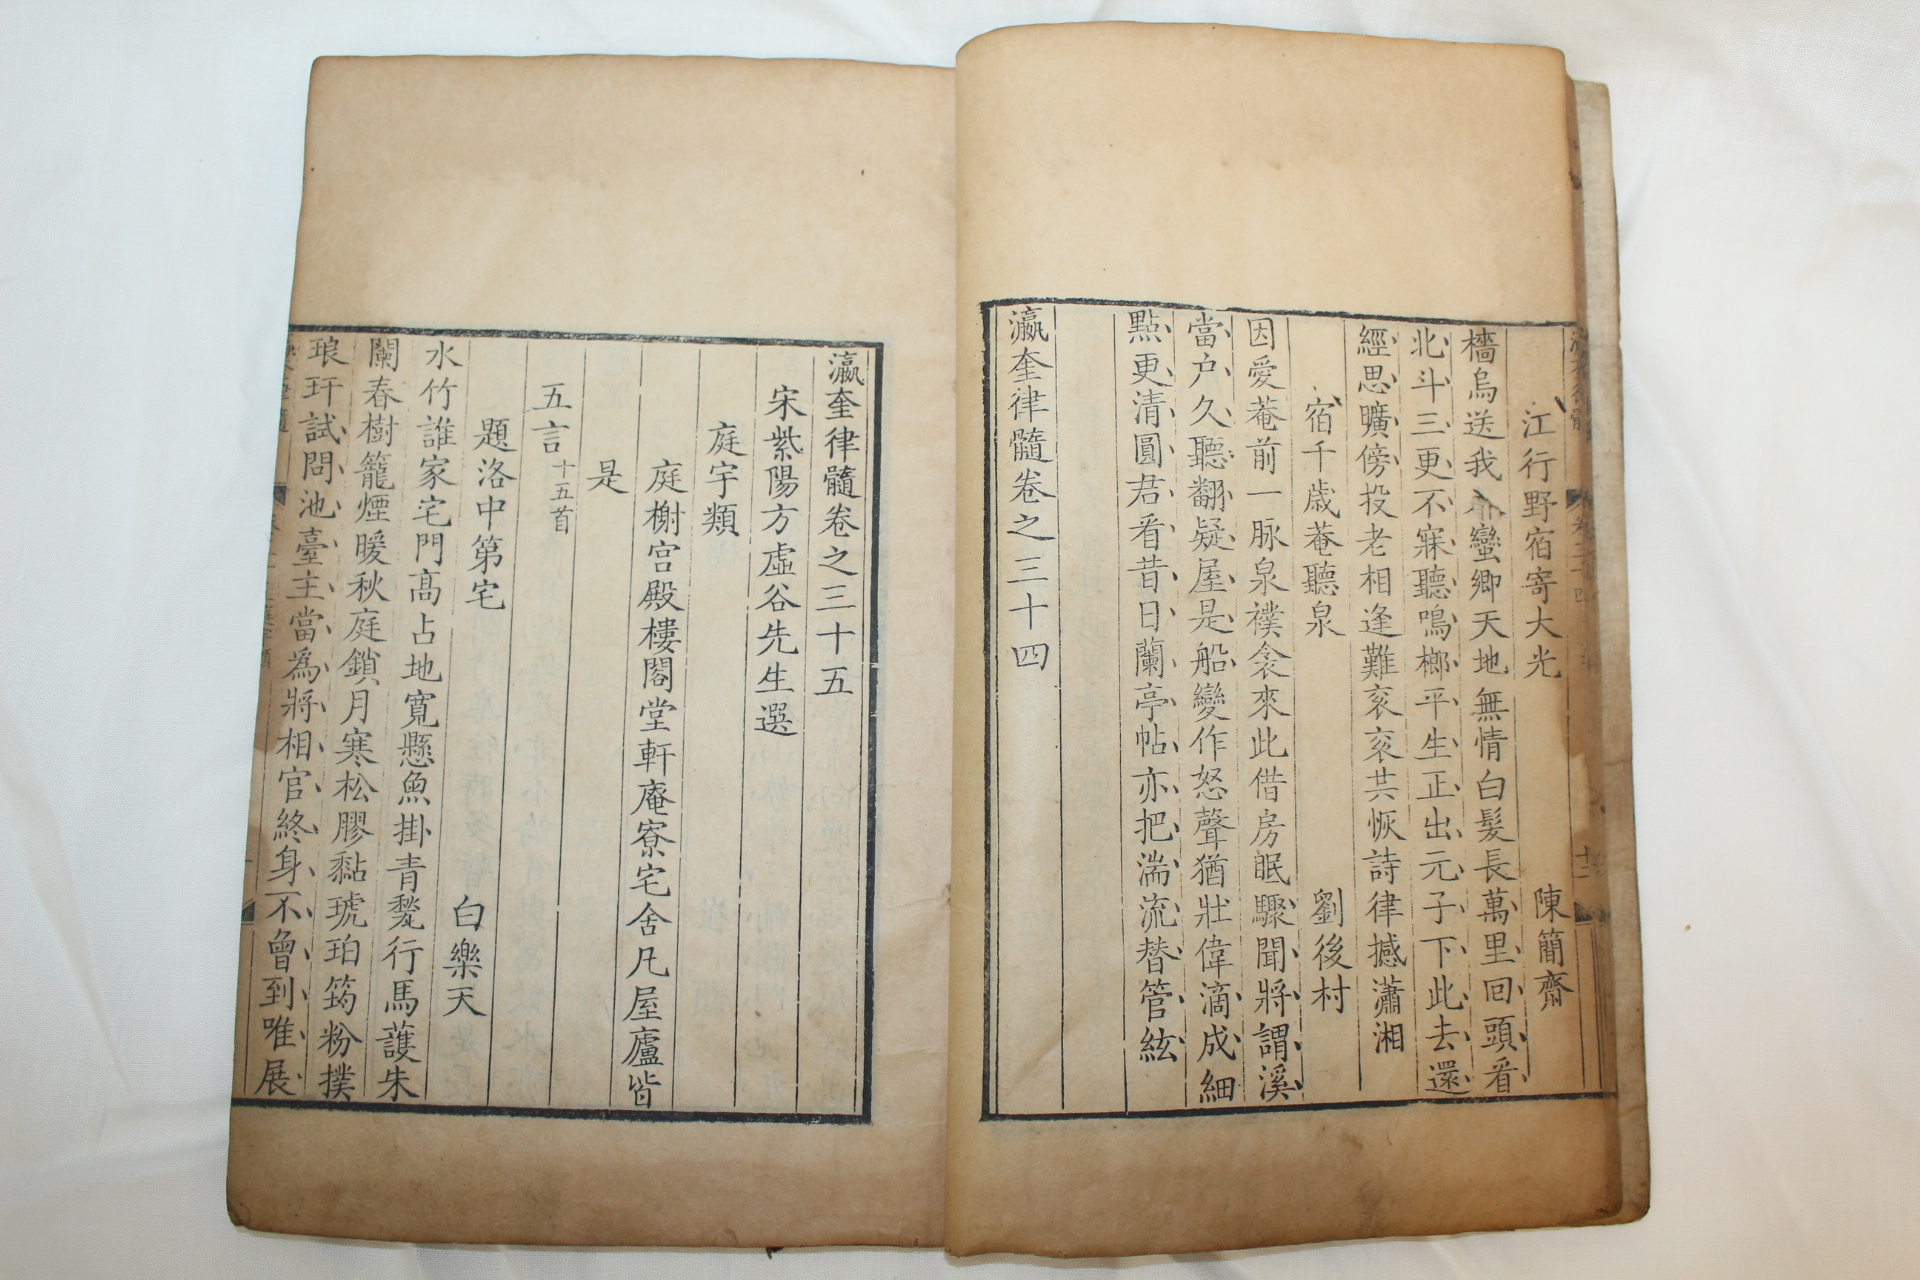 江行野宿寄大光 陳簡齋
檣烏送我入蠻鄉天地無情白髮長萬里回頭看
北斗三更不寐聽鳴榔平生正出元子下此去還
經思曠傍投老相逢難衮衮共恢詩律撼瀟湘
宿千歲菴聽泉 劉後村
因愛菴前一脉泉襆衾來此借房眠驟聞將謂溪
當户久聽翻疑屋是船變作怒聲猶壯偉滴成細
點更清圓君看昔日蘭亭帖亦把湍流替管絃
瀛奎律髓卷之三十四
瀛奎律髓卷之三十五
宋紫陽方虛谷先生選
庭宇類
庭榭宮殿樓閣堂軒庵寮宅舍凡屋廬皆
是
五言十五首
題洛中第宅 白樂天
水竹誰家宅門高占地寬懸魚掛青甃行馬護朱
闌春樹籠煙暖秋庭鎖月寒松膠黏琥珀筠粉撲
琅玕試問池臺主當為將相官終身不曾到唯展